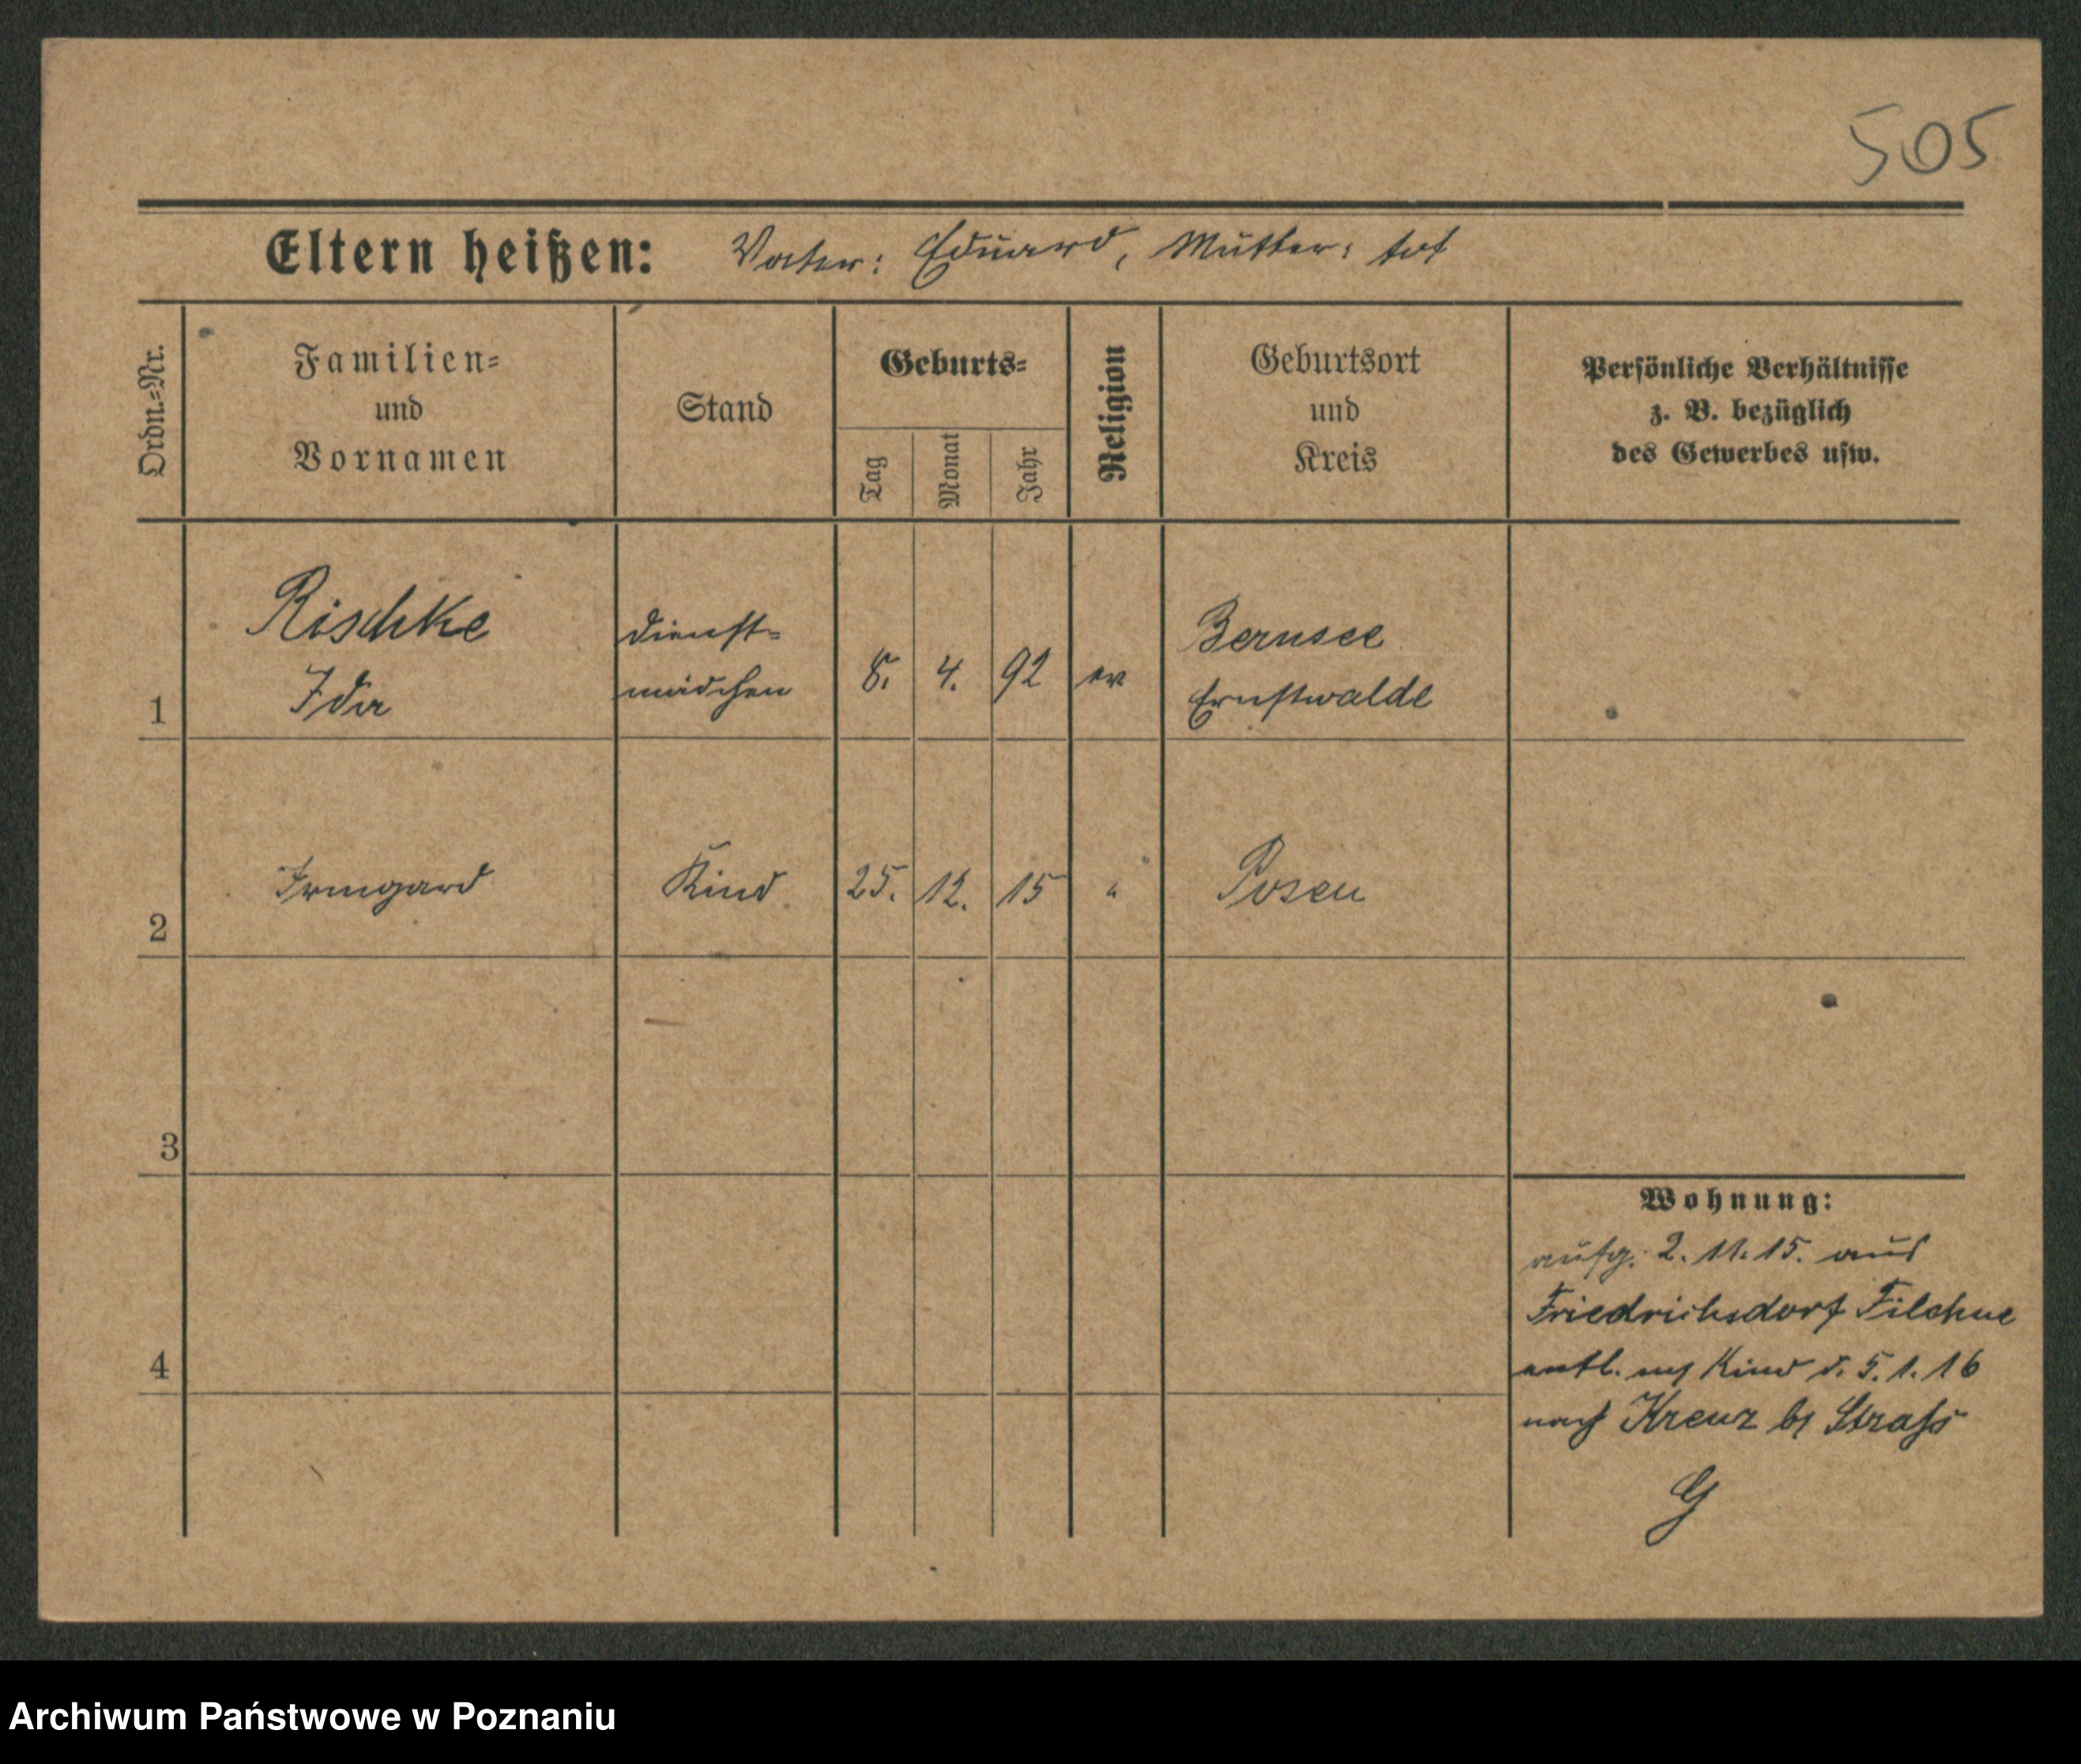 505
Eltern heißen: Vater: Eduard, Mutter: tot
Ordn.-Nr.
Familien-
und
Vornamen
Stand
Geburts-
Tag
Monat
Jahr
Religion
Geburtsort
und
Kreis
Persönliche Verhältnisse
z. B. bezüglich
des Gewerbes usw.
1
Rischke
Ida
Dienst-
mädchen
8. 4. 92 ev
Bernsee
Ernstwalde
2
Irmgard
Kind
25. 12. 15 "
Posen
3
4
Wohnung:
aufg. 2. 11. 15. aus
Friedrichsdorf Filehne
entl. mit Kind d. 5. 1. 16
nach Kreuz
G
Archiwum Państwowe w Poznaniu